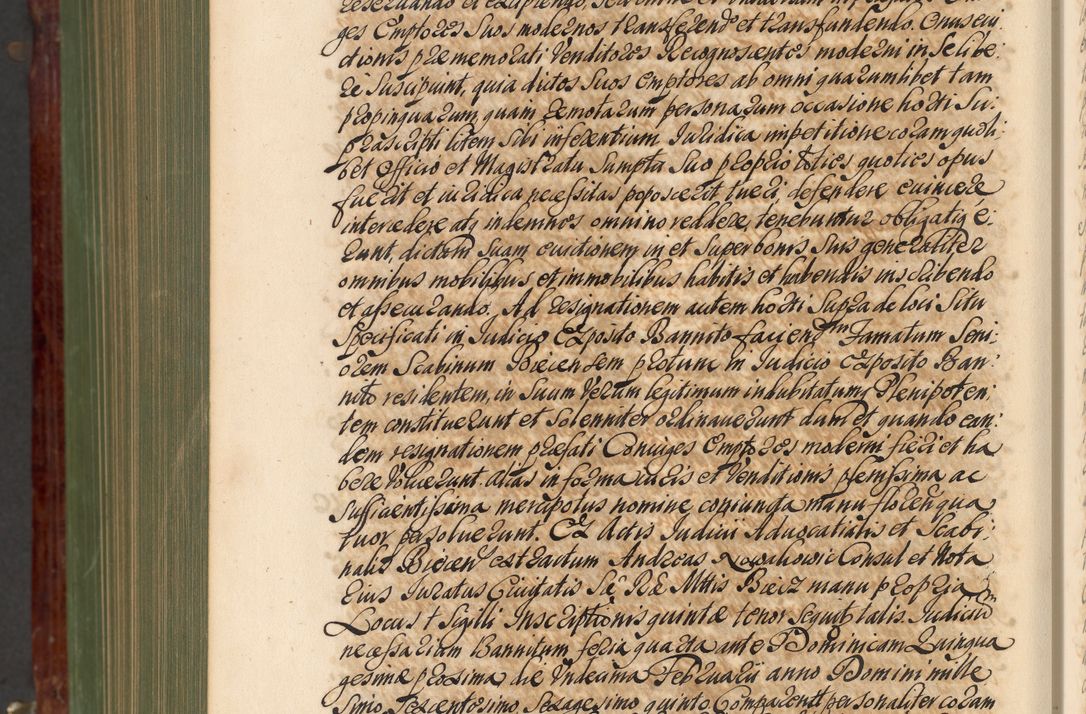 ges Emptores Suos modernos transferend et transfundendo. Onus evi:
ctionis præmemorati Venditores Recognoscentes moderni in Se libe:
re Suscipiunt, quia dictos Suos Emptores ab omni quarumlibet tam
propinquarum, quam remotarum personarum occasione horti Su:
prascripti litem Sibi inferentium Juridica impetitione coram quoli
bet Officio et Magistratu Sumptu Suo proprio toties quoties opus
fuerit et iuridica necessitas poposcerit tueri, defendere evincere
intercedere atq indemnes omnino reddere, tenebuntur obligatiq e:
runt, dictam Suam evictionem in et Super bonis Suis generaliter
omnibus mobilibus, et immobilibus habitis et habendis inscribendo
et assecurando. Ad resignationem autem horti Supra de loci Situ
Specificati in Judicio Exposito Bannito faciendm Famatum Seni:
orem Scabinum Biecensem protunc in Judicio Exposito Ban:
nito residentem, in Suum Verum legitimum indubitatumq Plenipoten:
tem constituerunt et Solenniter ordinauerunt dum et quando ean:
dem resignationem præfati Coniuges Emptores moderni fieri et ha
bere Voluerunt alias in forma iuris et Venditionis plenissima ac
Sufficientissima mercipotus nomine coniuncta manu floren qua
tuor persoluerunt. Ex Actis Judicii Aduocatialis et Scabi:
nalis Biecen extractum Andreas Kowalkowic Consul et Nota
rius Juratus Civitatis Sæ Ræ Mttis Biecz manu propria mp
Locus + Sigilli Inscriptionis quintæ tenor Sequit talis. Judiciu
necessarium Bannitum feria quarta ante Dominicam Quinqua
gesimæ proxima, die Undecima Februarii anno Domini mille
Simo Sexcentesimo Sexagesimo quinto Comparentt personaliter coram